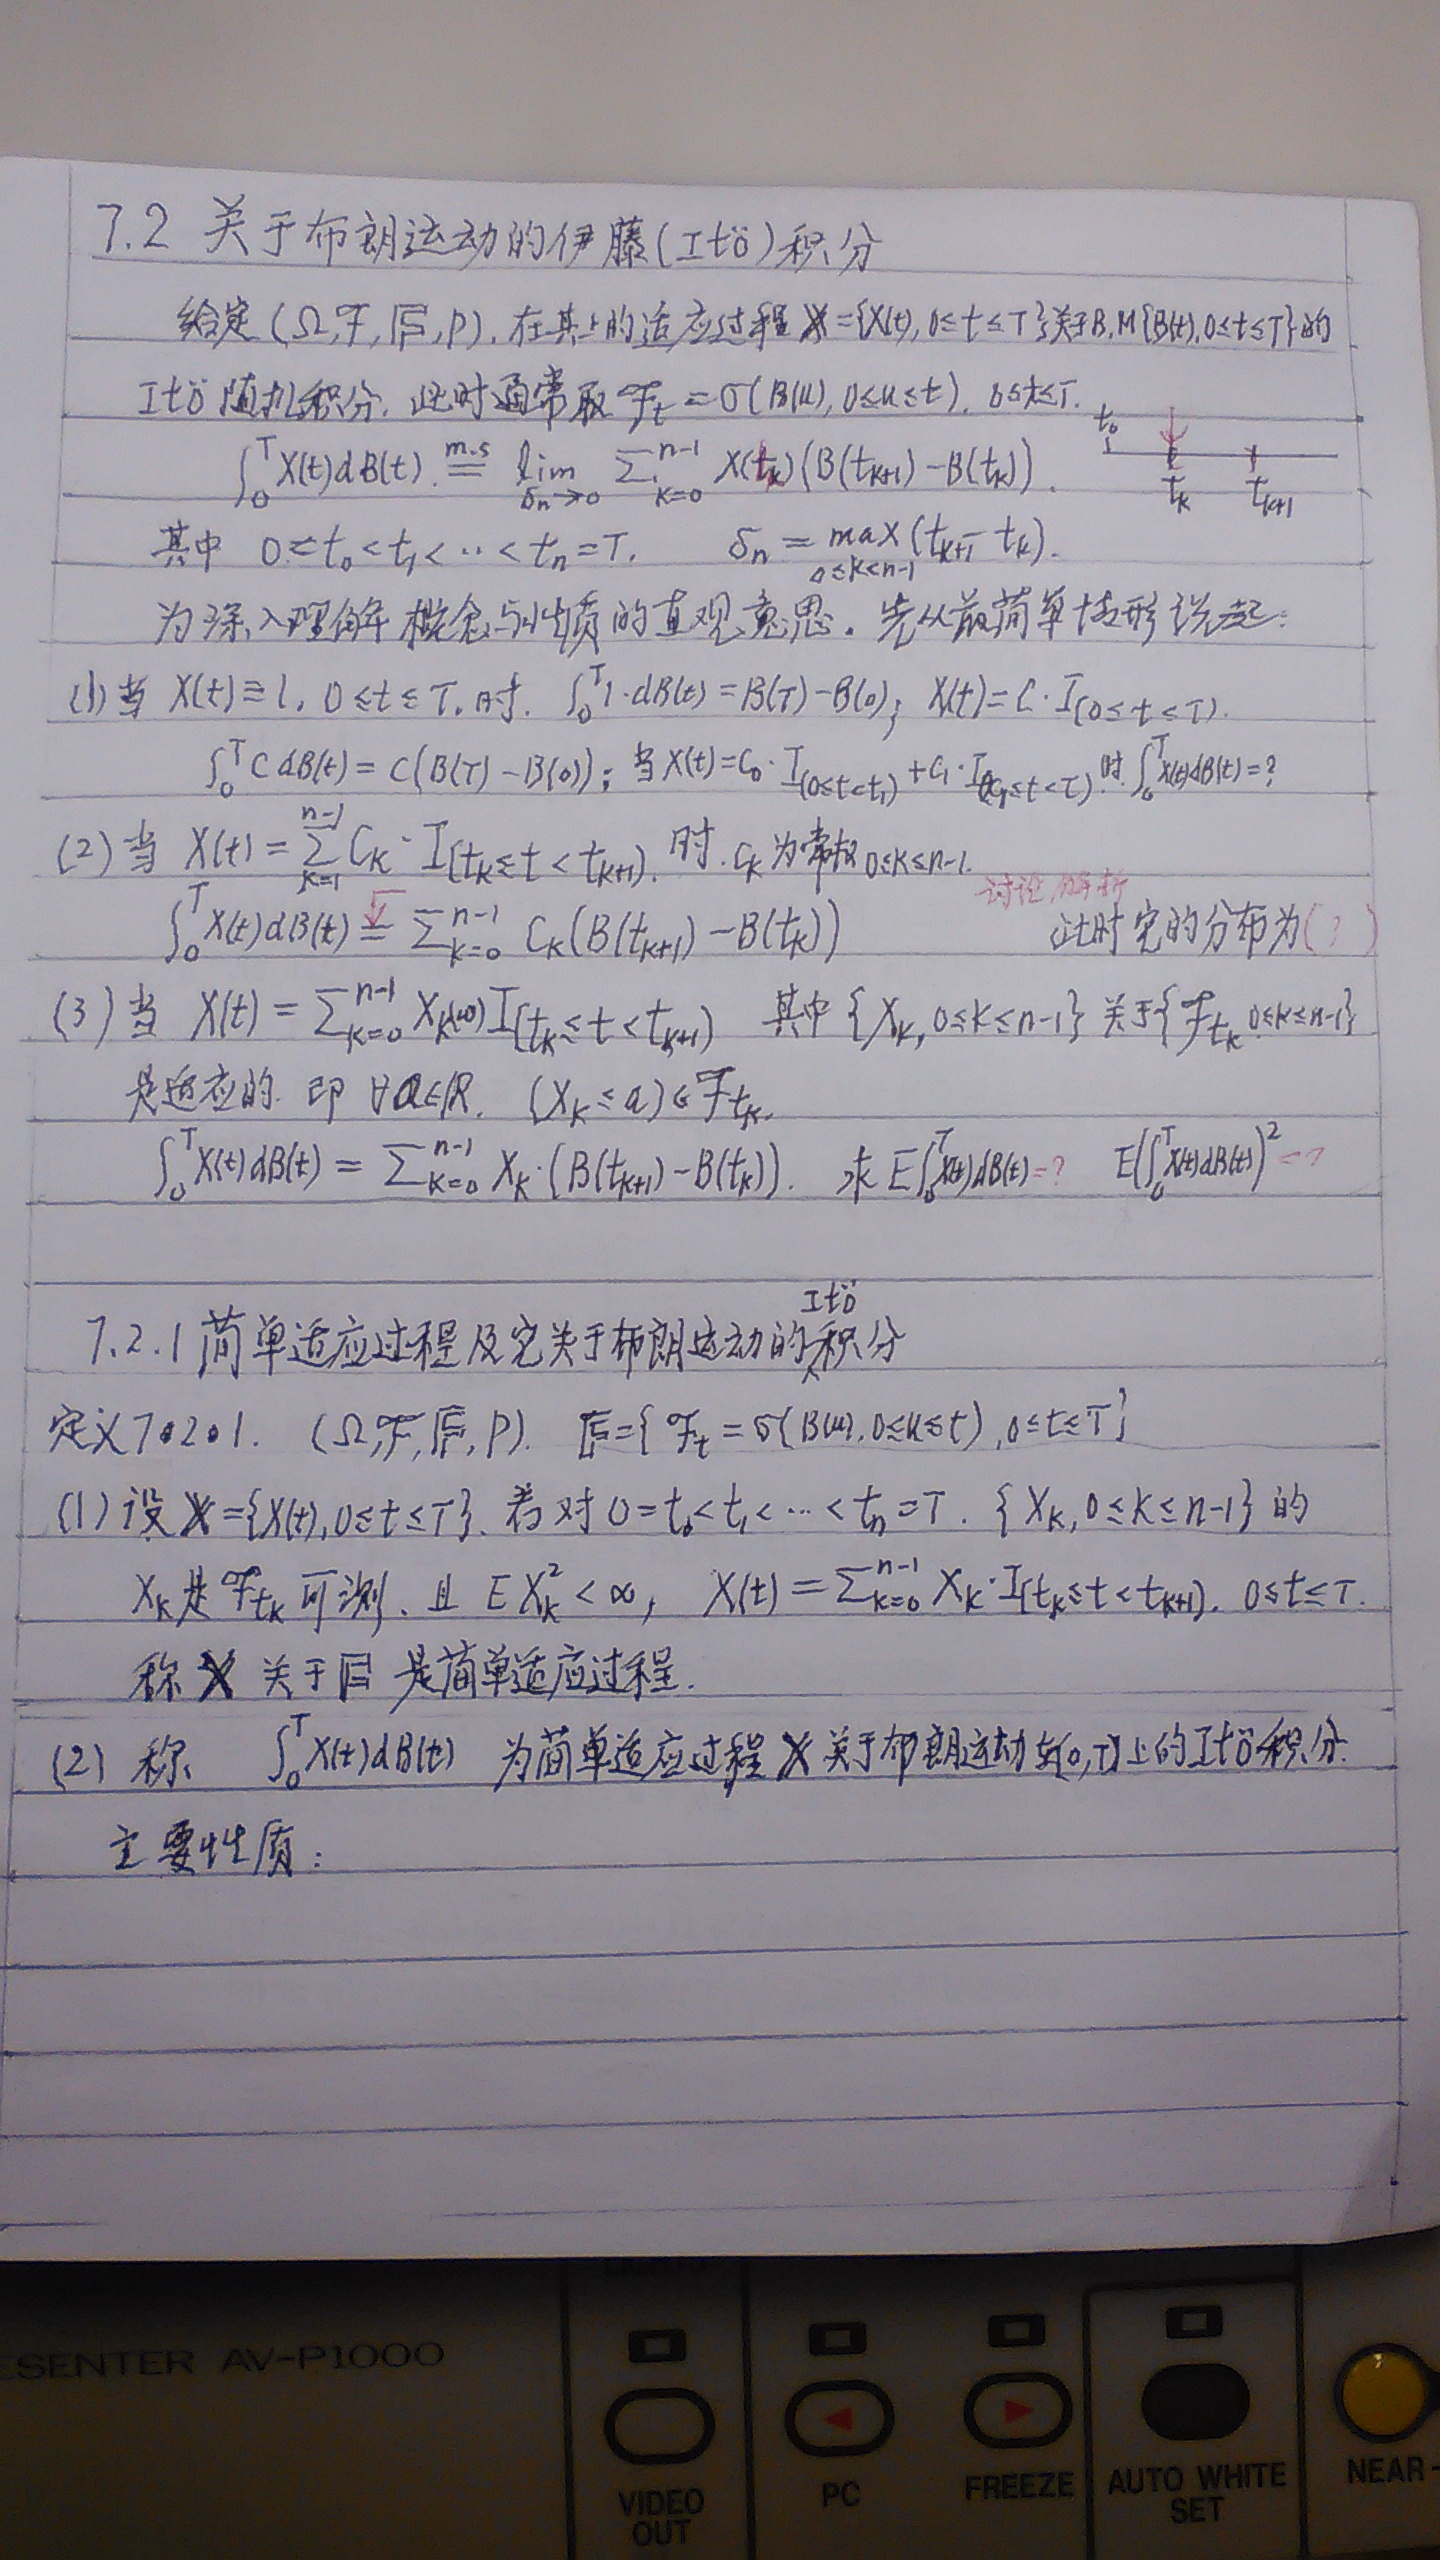 7.2 关于布朗运动的伊藤(Itö)积分
给定(Ω,ℱ,𝔽,P).在其上的适应过程 X={X(t),0≤t≤T}关于B.M{B(t),0≤t≤T}的
Itö随机积分.此时通常取 ℱ_t=σ(B(u),0≤u≤t). 0≤t≤T.
∫_0^T X(t)dB(t) =^{m.s} lim_{δn→0} Σ_{k=0}^{n-1} X(t_k)(B(t_{k+1})-B(t_k)).
t_0 t_k t_{k+1}
其中 0=t_0<t_1<…<t_n=T. δ_n=max_{0≤k<n-1}(t_{k+1}-t_k).
为深入理解概念与性质的直观意思.先从最简单情形说起:
(1)当 X(t)≡1, 0≤t≤T.时. ∫_0^T 1·dB(t)=B(T)-B(0); X(t)=C·I_{(0≤t<T)}.
∫_0^T C dB(t)=C(B(T)-B(0)); 当X(t)=C_0·I_{(0≤t<t_1)}+C_1·I_{(t_1≤t<T)}.时.∫_0^T X(t)dB(t)=?
(2)当 X(t)=Σ_{k=1}^{n-1} C_k·I_{(t_k≤t<t_{k+1})}.时.C_k为常数 0≤k≤n-1.
讨论,解析
∫_0^T X(t)dB(t) = Σ_{k=0}^{n-1} C_k(B(t_{k+1})-B(t_k)) 此时它的分布为(?)
(3)当 X(t)=Σ_{k=0}^{n-1} X_k(ω)I_{(t_k≤t<t_{k+1})} 其中{X_k,0≤k≤n-1}关于{ℱ_{t_k} 0≤k≤n-1}
是适应的.即 ∀a∈R. (X_k≤a)∈ℱ_{t_k}.
∫_0^T X(t)dB(t)=Σ_{k=0}^{n-1} X_k·(B(t_{k+1})-B(t_k)). 求E∫_0^T X(t)dB(t)=? E(∫_0^T X(t)dB(t))^2=?
7.2.1 简单适应过程及它关于布朗运动的Itö积分
定义7.2.1. (Ω,ℱ,𝔽,P). 𝔽={ℱ_t=σ(B(u),0≤u≤t),0≤t≤T}
(1)设 X={X(t),0≤t≤T}.若对 0=t_0<t_1<…<t_n=T. {X_k,0≤k≤n-1}的
X_k是ℱ_{t_k}可测.且 EX_k^2<∞, X(t)=Σ_{k=0}^{n-1} X_k·I_{(t_k≤t<t_{k+1})}. 0≤t≤T.
称 X 关于 𝔽 是简单适应过程.
(2)称 ∫_0^T X(t)dB(t) 为简单适应过程 X 关于布朗运动在[0,T]上的Itö积分.
主要性质:
ESENTER AV-P1000
VIDEO OUT
PC
FREEZE
AUTO WHITE SET
NEAR-